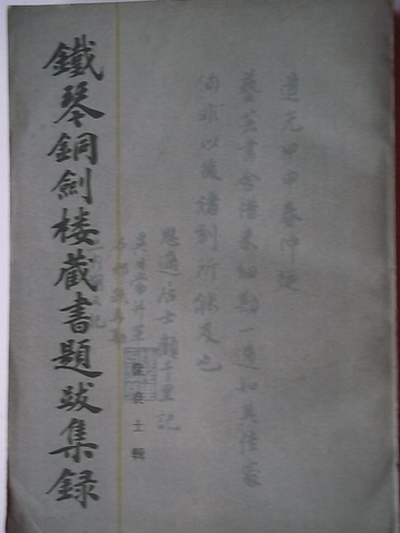 道光甲申春仲從
藝芸書舍借來細勘一過知其佳處
洵非以後諸刻所能及也
思適居士顧千里記
瞿良士輯
鐵琴銅劍楼藏書題跋集録